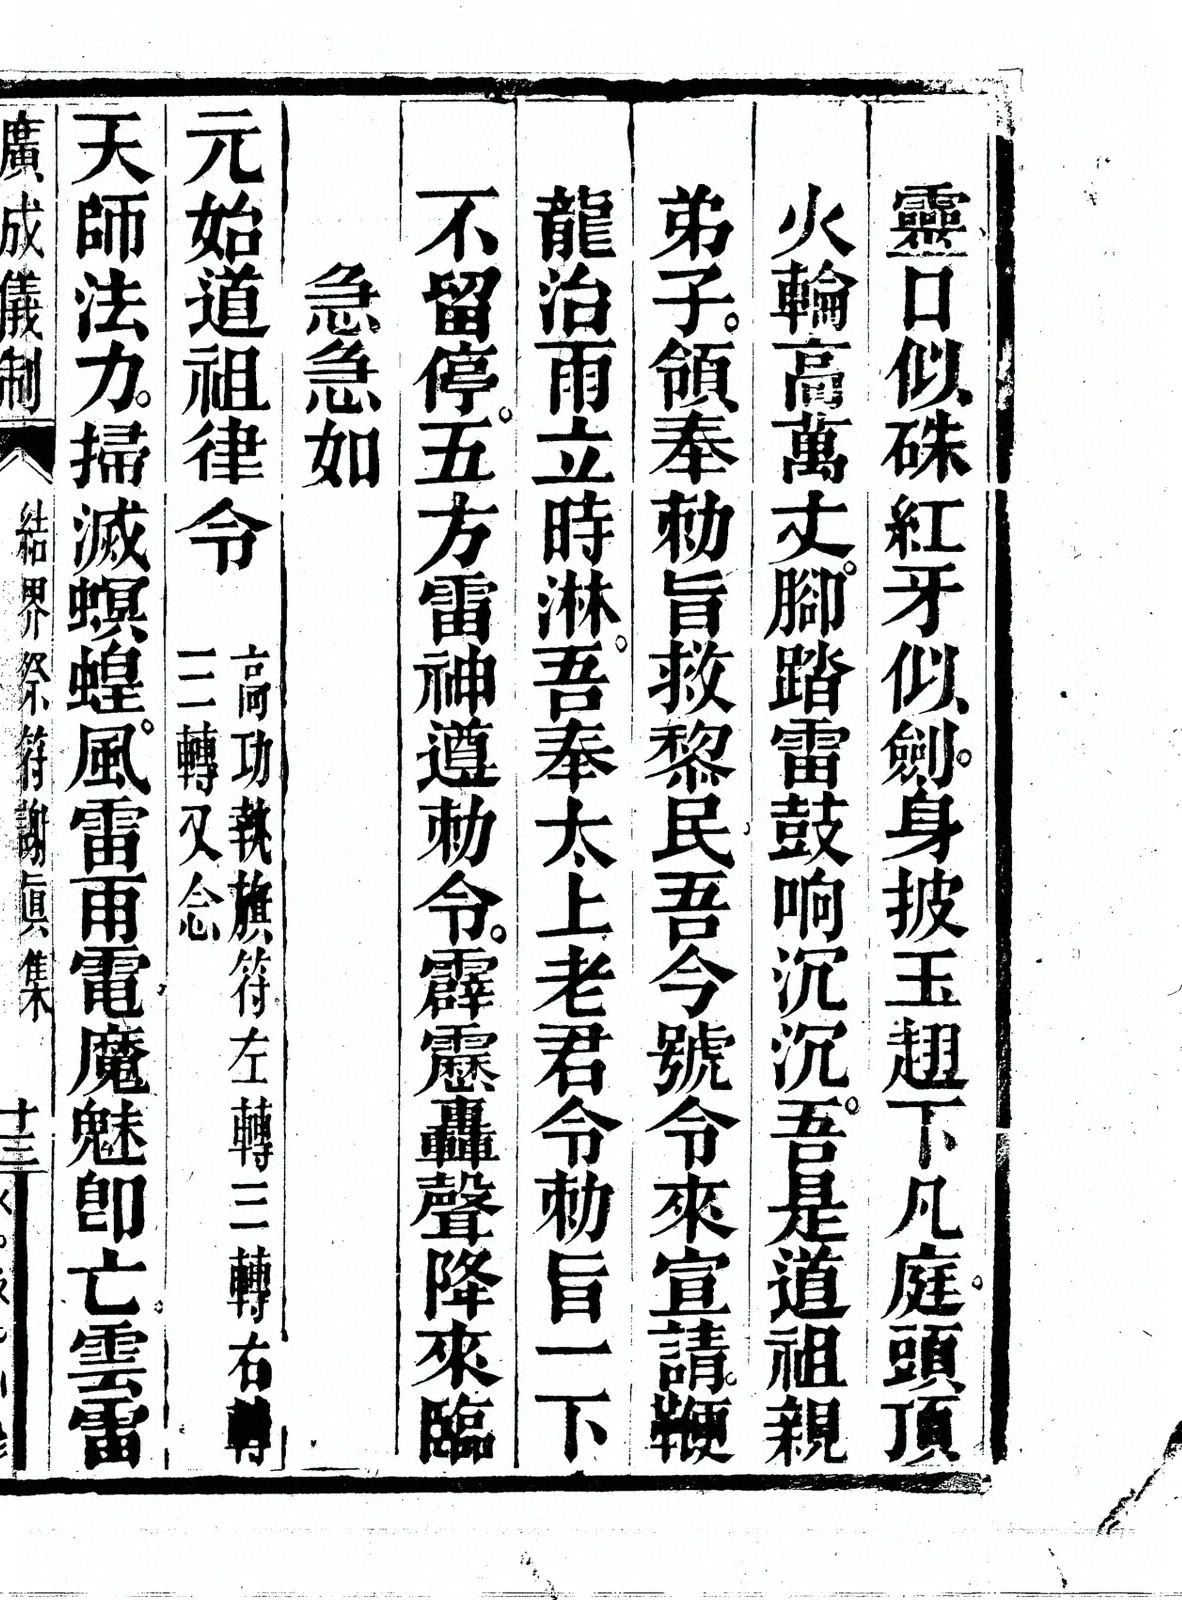 靈口似硃紅牙似劍。身披玉翅下凡庭。頭頂
火輪高萬丈。腳踏雷鼓响沉沉。吾是道祖親
弟子。領奉勅旨救黎民吾今號令來宣請。鞭
龍治雨立時淋。吾奉太上老君令勅旨一下
不留停。五方雷神遵勅令。霹靂轟聲降來臨
急急如
元始道祖律令
高功執旗符左轉三轉右轉
三轉又念
天師法力。掃滅螟蝗。風雷雨電魔魅卽亡。雲雷
廣成儀制
結界祭符謝眞集
十三